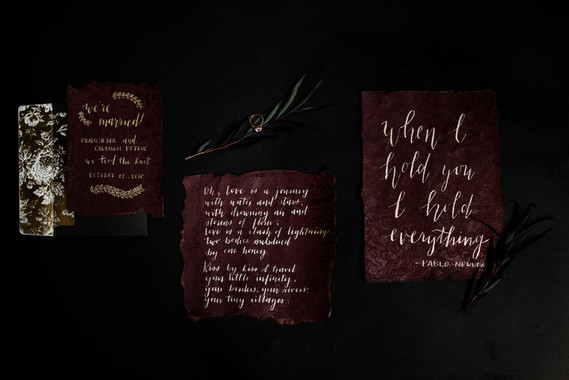 we're
married!
and
we tied the knot
OCTOBER
Oh, Love is a journey
with water and stars,
with drowning air and
storms of flour;
Love is a clash of lightnings,
two bodies subdued
by one honey.
Kiss by kiss I travel
your little infinity,
your borders, your rivers,
your tiny villages;
when I
hold you
I hold
everything
-PABLO NERUDA